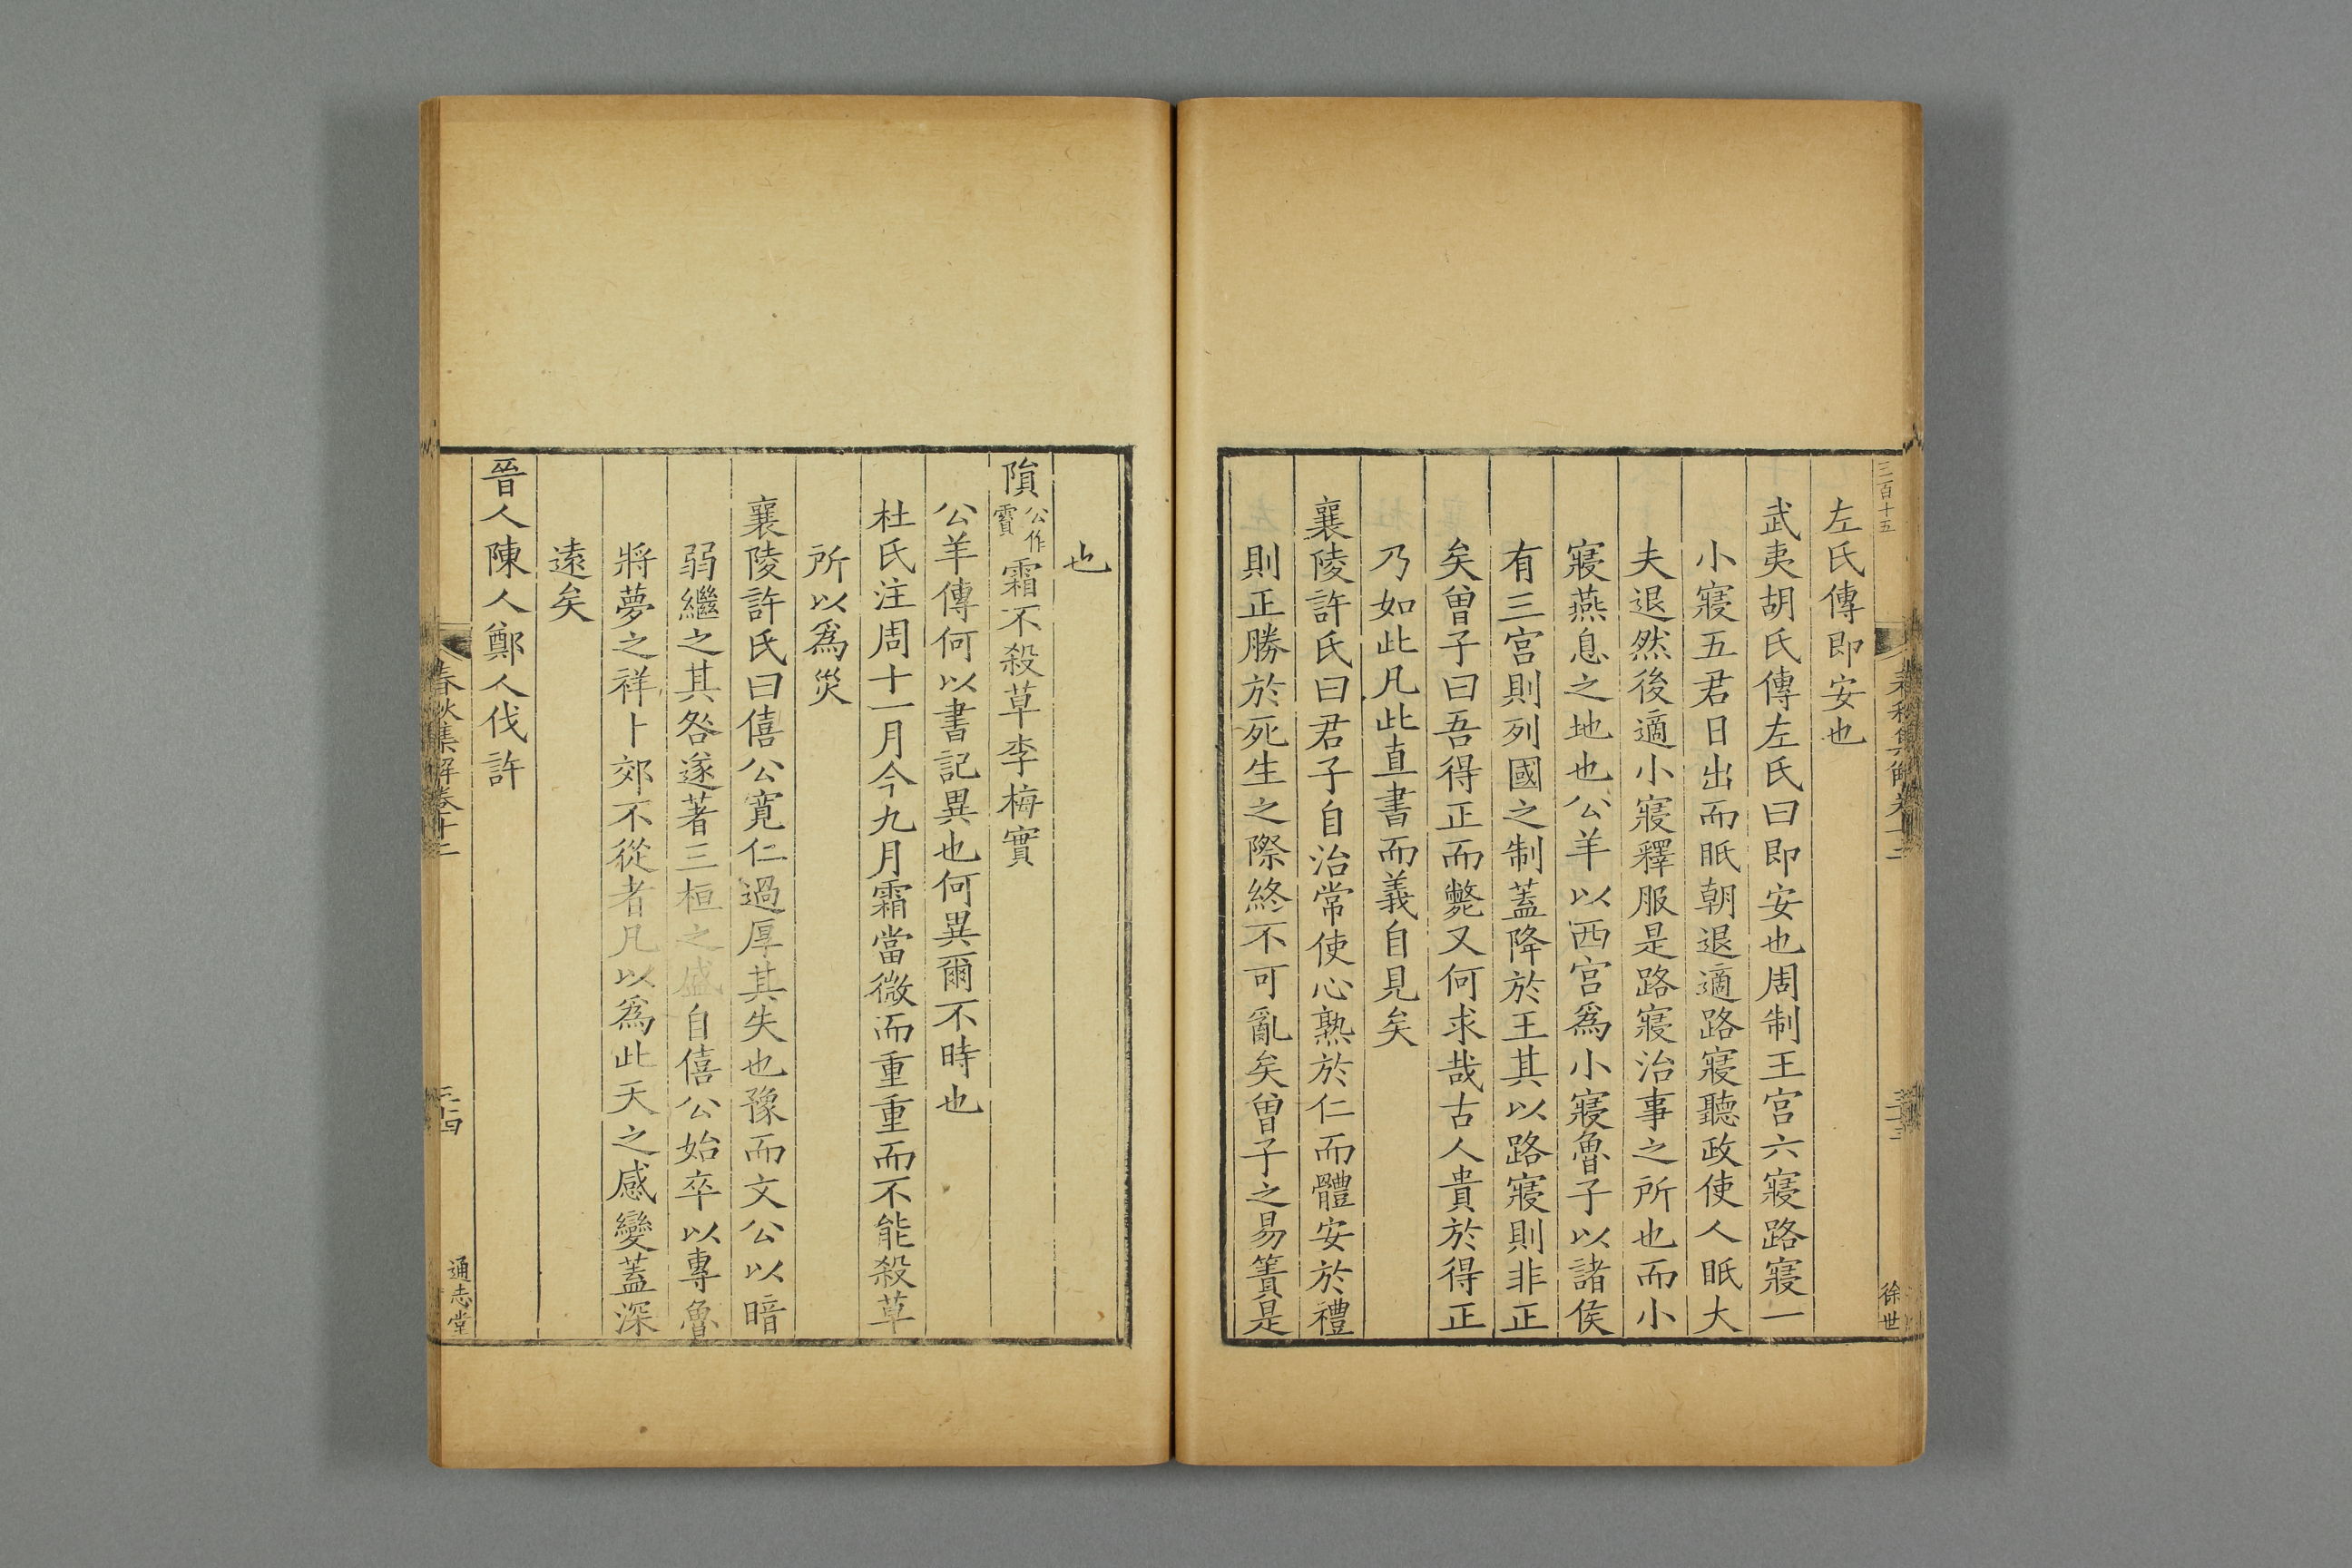 三百十五
春秋集解卷十二
徐世
左氏傳即安也
武夷胡氏傳左氏曰即安也周制王宮六寢路寢一
小寢五君日出而眂朝退適路寢聽政使人眂大
夫退然後適小寢釋服是路寢治事之所也而小
寢燕息之地也公羊以西宮爲小寢魯子以諸侯
有三宮則列國之制蓋降於王其以路寢則非正
矣曾子曰吾得正而斃又何求哉古人貴於得正
乃如此凡此直書而義自見矣
襄陵許氏曰君子自治常使心熟於仁而體安於禮
則正勝於死生之際終不可亂矣曾子之易簀是
也
隕公作霣霜不殺草李梅實
公羊傳何以書記異也何異爾不時也
杜氏注周十一月今九月霜當微而重重而不能殺草
所以爲災
襄陵許氏曰僖公寬仁過厚其失也豫而文公以暗
弱繼之其咎遂著三桓之盛自僖公始卒以專魯
將夢之祥卜郊不從者凡以爲此天之感變蓋深
遠矣
晉人陳人鄭人伐許
春秋集解卷十二
二十四
通志堂